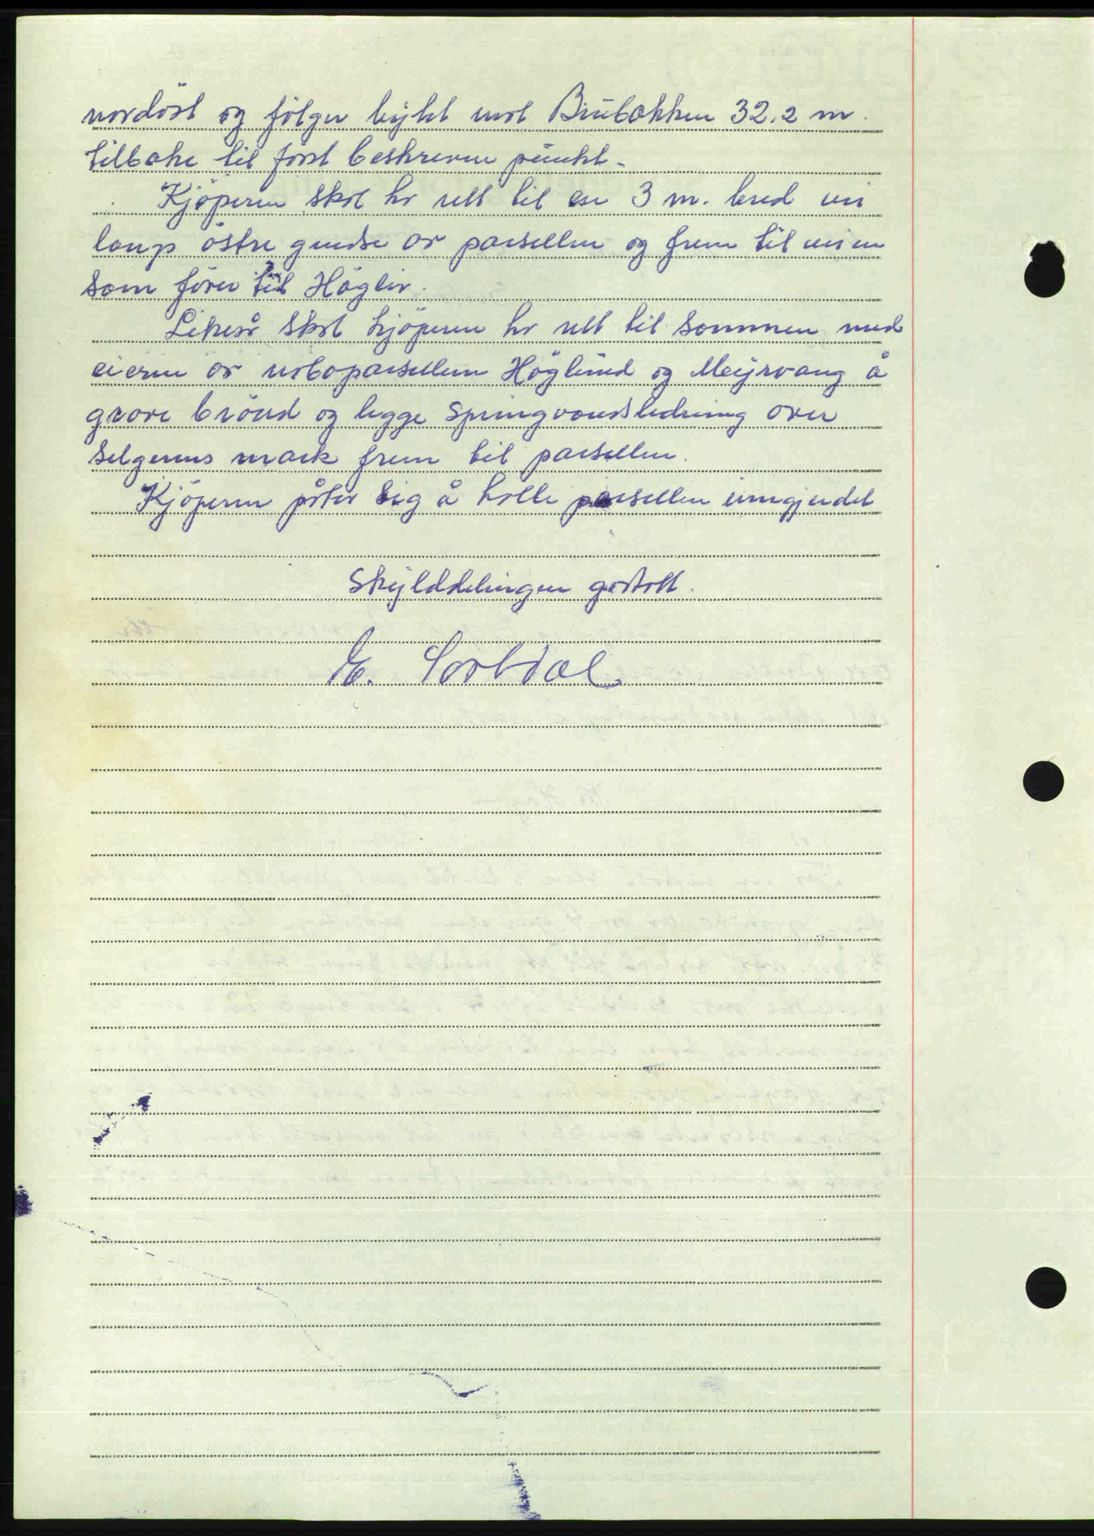 nordöst og følger bekk mot Biubakken 32.2 m.
tilbake til först beskreven punkt.
Kjöperen skal ha rett til en 3 m. bred vei
langs östre grense av parsellen og frem til veien
som fören til Höglia.
Likeså skal kjöperen ha rett til sammen med
eieren av naboparsellen Höglund og Meyrvang å
grave brönd og legge springvandsledning over
selgerens mark frem til parsellen.
Kjöperen påtar sig å holde parsellen inngjerdet
Skylddelingen godtatt.
E. Sortdal